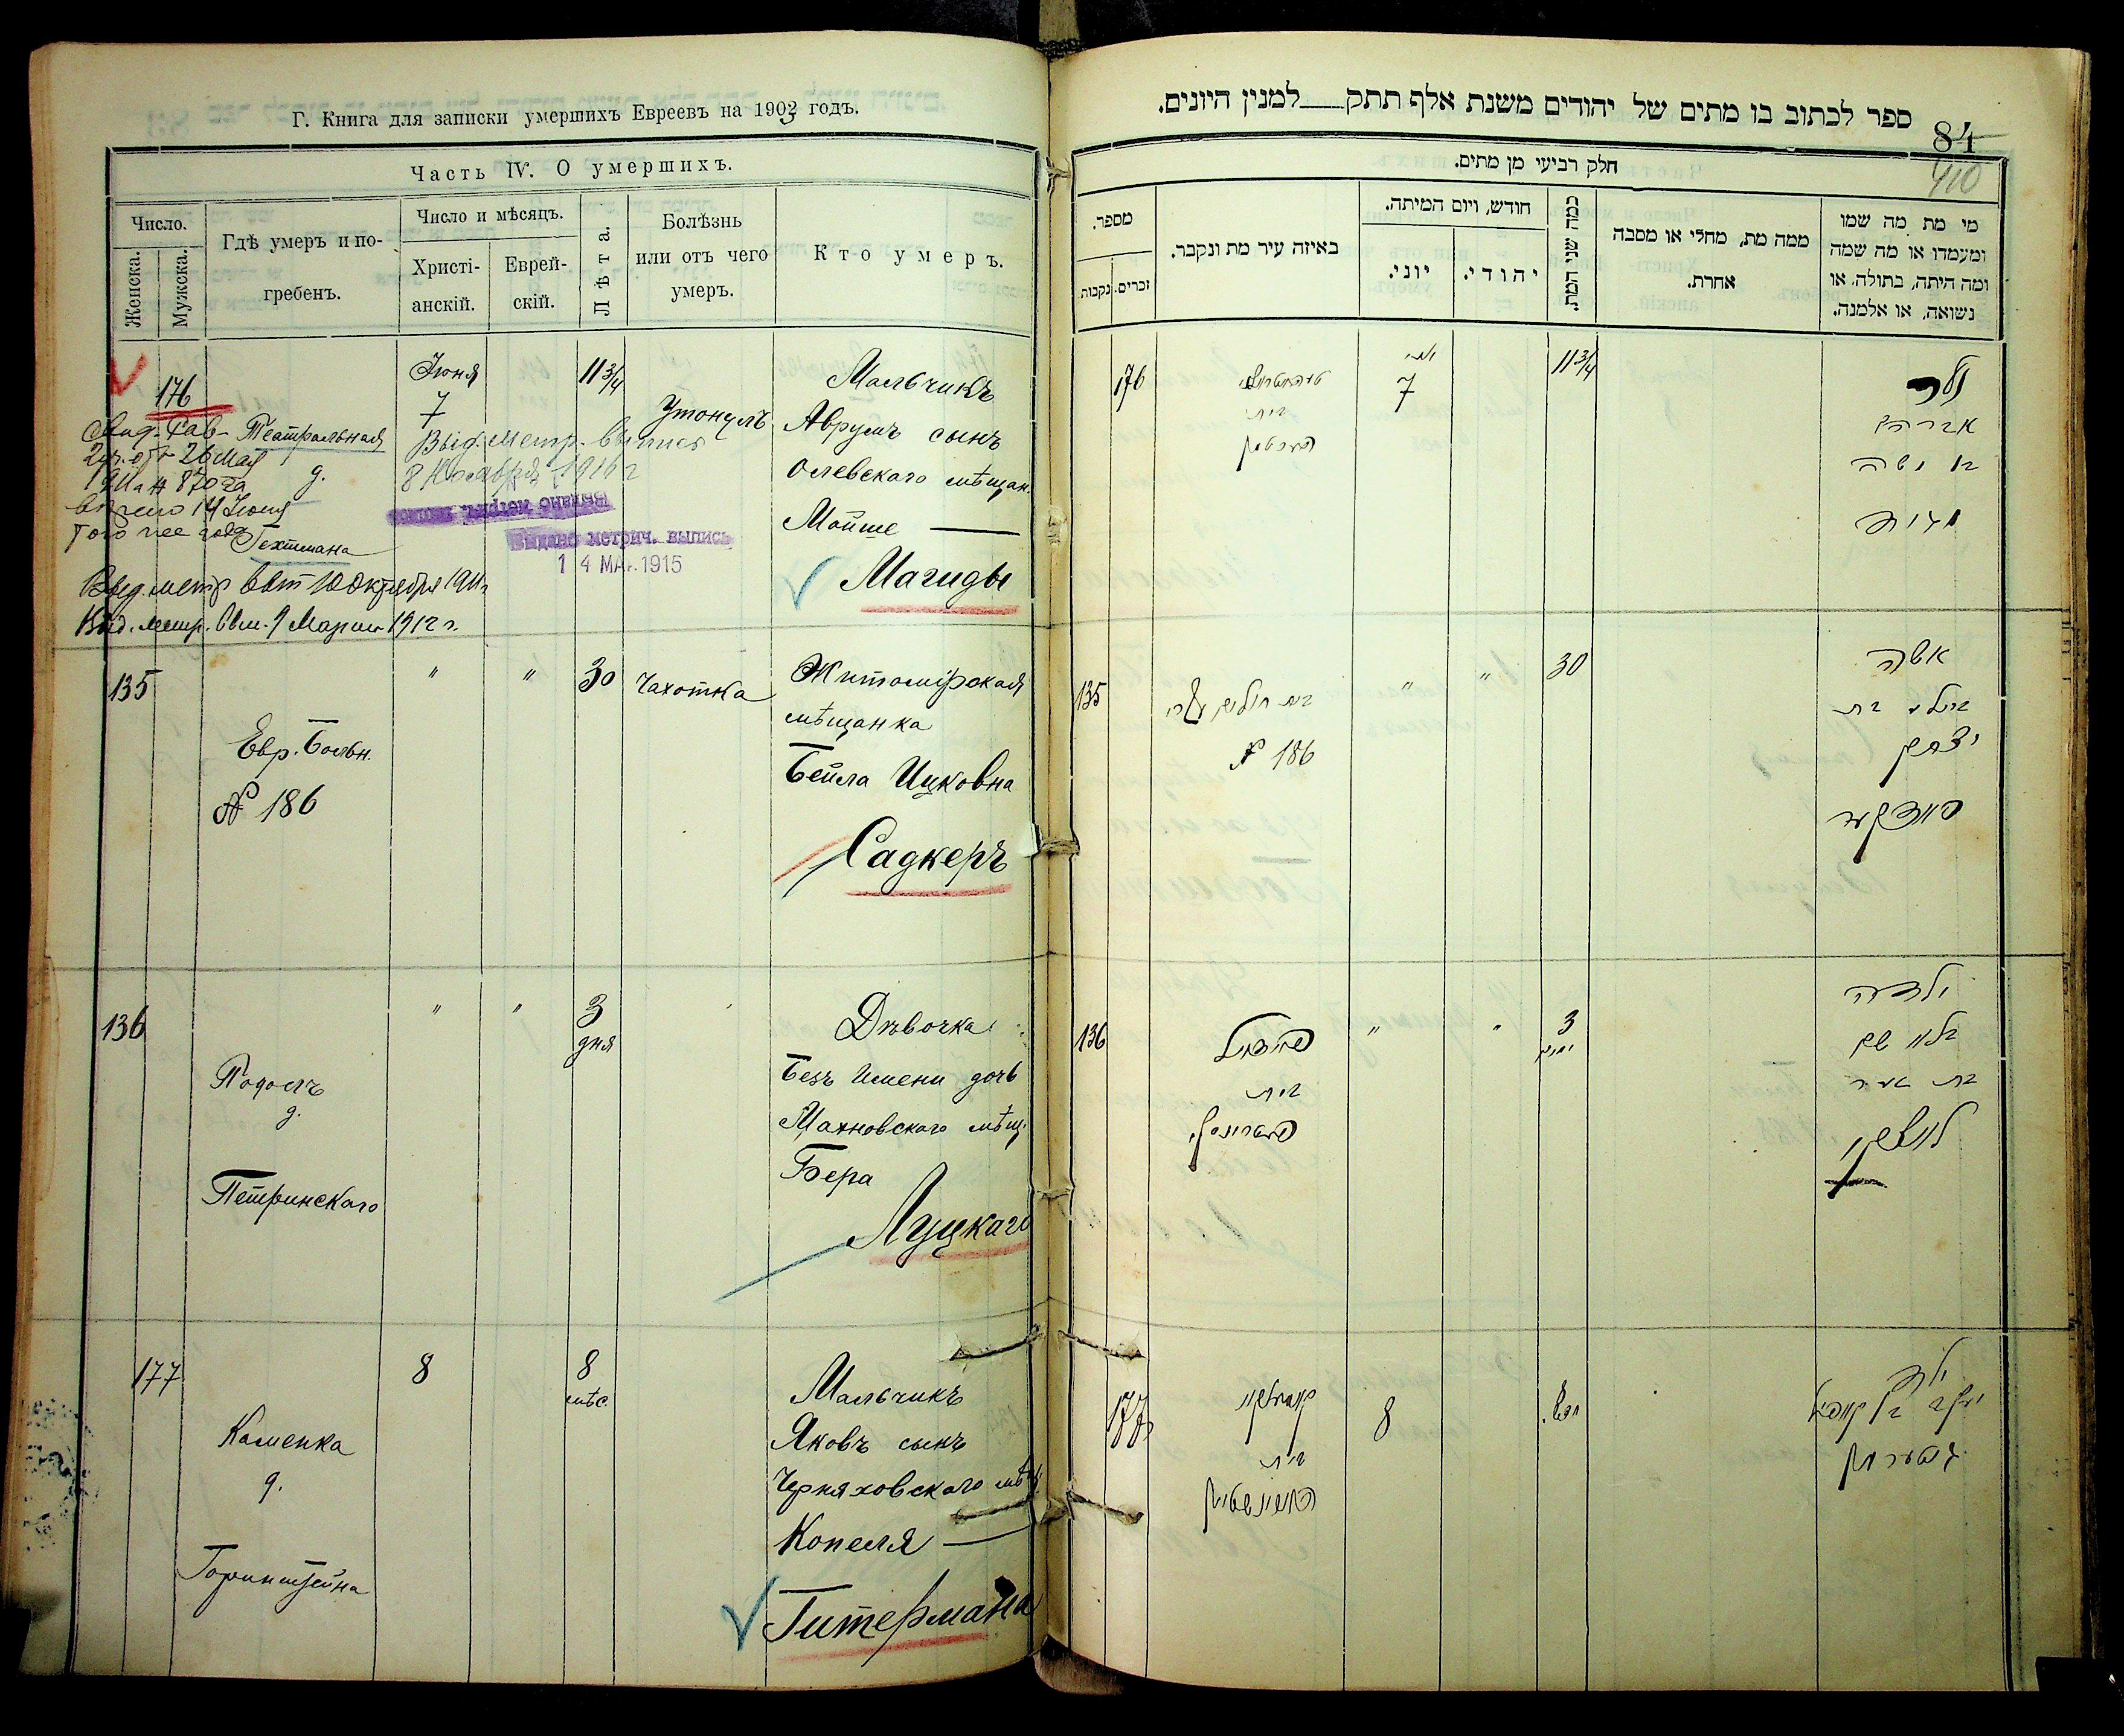 Г. Книга для записки умершихъ Евреевъ на 1903 годъ.
Часть IV. О умершихъ.
Число.
Женска.
Мужска.
Гдѣ умеръ и по-
гребенъ.
Число и мѣсяцъ.
Христі-
анскій.
Еврей-
скій.
Лѣта.
Болѣзнь
или отъ чего
умеръ.
Кто умеръ.
176
Театральная
д.
Гехтмана
Іюня
7
11 3/4
Утонулъ
Мальчикъ
Аврумъ сынъ
Олевскаго мѣщан.
Мойше —
Магиды
26 Мая
14 Іюня
Того же года
Выд. метр. выпись
8 Ноября 1916 г
Выдано метрич. выпись
14 МАР. 1915
Выд. метр вып 10 Октября 1911г
Выд. метр. вып. 9 Марта 1912 г.
135
Евр. Больн.
№ 186
"
"
30
Чахотка
Житомірская
мѣщанка
Бейла Ицковна
Садкеръ
136
Подолъ
д.
Петринскаго
"
"
3
дня
Дѣвочка
Безъ Имени дочь
Махновскаго мѣщ.
Бера
Луцкаго
177
Каменка
д.
Горинштейна
8
8
мѣс.
Мальчикъ
Яковъ сынъ
Черняховскаго мѣщ.
Копеля —
Гитермана
ספר לכתוב בו מתים של יהודים משנת אלף תתק__למנין היונים.
84
410
חלק רביעי מן מתים.
מי מת מה שמו
ומעמדו או מה שמה
ומה היתה, בתולה, או
נשואה, או אלמנה.
ממה מת, מחלי או מסבה
אחרת.
כמה שני המת.
חודש, ויום המיתה.
יהודי.
יוני.
באיזה עיר מת ונקבר.
מספר.
זכרים.
נקבות.
176
בית
7
11 3/4
ילד
אברהם
בן משה
135
בית חולים
№ 186
"
"
30
אשה
ביילא בת
יצחק
136
בית
"
"
3
ימים
ילדה
בלא שם
בת בער
177
בית
8
8
ילד
יעקב בן קאפיל
גיטערמאן